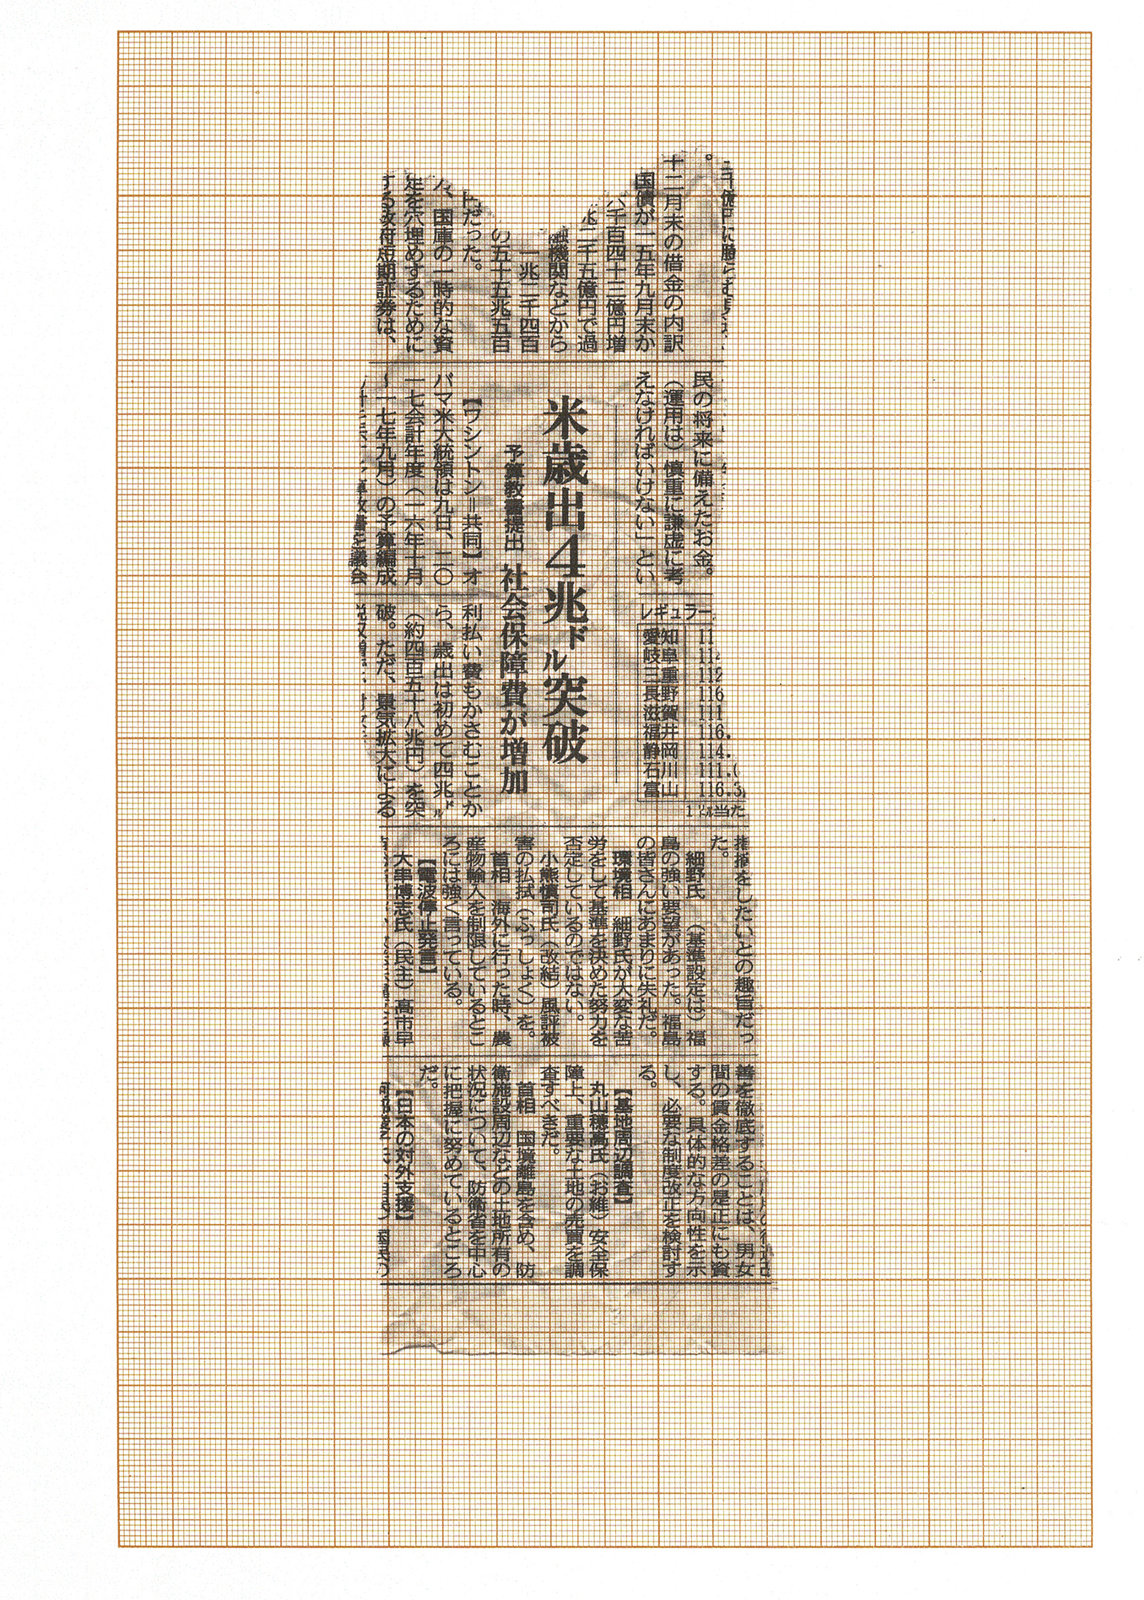 十二月末の借金の内訳
国債が一五年九月末か
千百四十三億円増
二千五億円で過
機関などから
一兆二千四百
の五十五兆五百
だった。
、国庫の一時的な資
足を穴埋めするために
する政府短期証券は、
民の将来に備えたお金。
（運用は）慎重に謙虚に考
えなければいけない」とい
米歳出4兆ドル突破
予算教書提出 社会保障費が増加
【ワシントン＝共同】オ
バマ米大統領は九日、二〇
一七会計年度（一六年十月
～一七年九月）の予算編成
を議会
利払い費もかさむことか
ら、歳出は初めて四兆ドル
（約四百五十八兆円）を突
破。ただ、景気拡大による
レギュラー
愛知
岐阜
三重
長野
滋賀
福井
静岡
石川
富山
指摘をしたいとの趣旨だっ
た。
細野氏 （基準設定は）福
島の強い要望があった。福島
の皆さんにあまりに失礼だ。
環境相 細野氏が大変な苦
労をして基準を決めた努力を
否定しているのではない。
小熊慎司氏（改結）風評被
害の払拭（ふっしょく）を。
首相 海外に行った時、農
産物輸入を制限しているとこ
ろには強く言っている。
【電波停止発言】
大串博志氏（民主）高市早
善を徹底することは、男女
間の賃金格差の是正にも資
する。具体的な方向性を示
し、必要な制度改正を検討す
る。
【基地周辺調査】
丸山穂高氏（お維）安全保
障上、重要な土地の売買を調
査すべきだ。
首相 国境離島を含め、防
衛施設周辺などの土地所有の
状況について、防衛省を中心
に把握に努めているところ
だ。
【日本の対外支援】